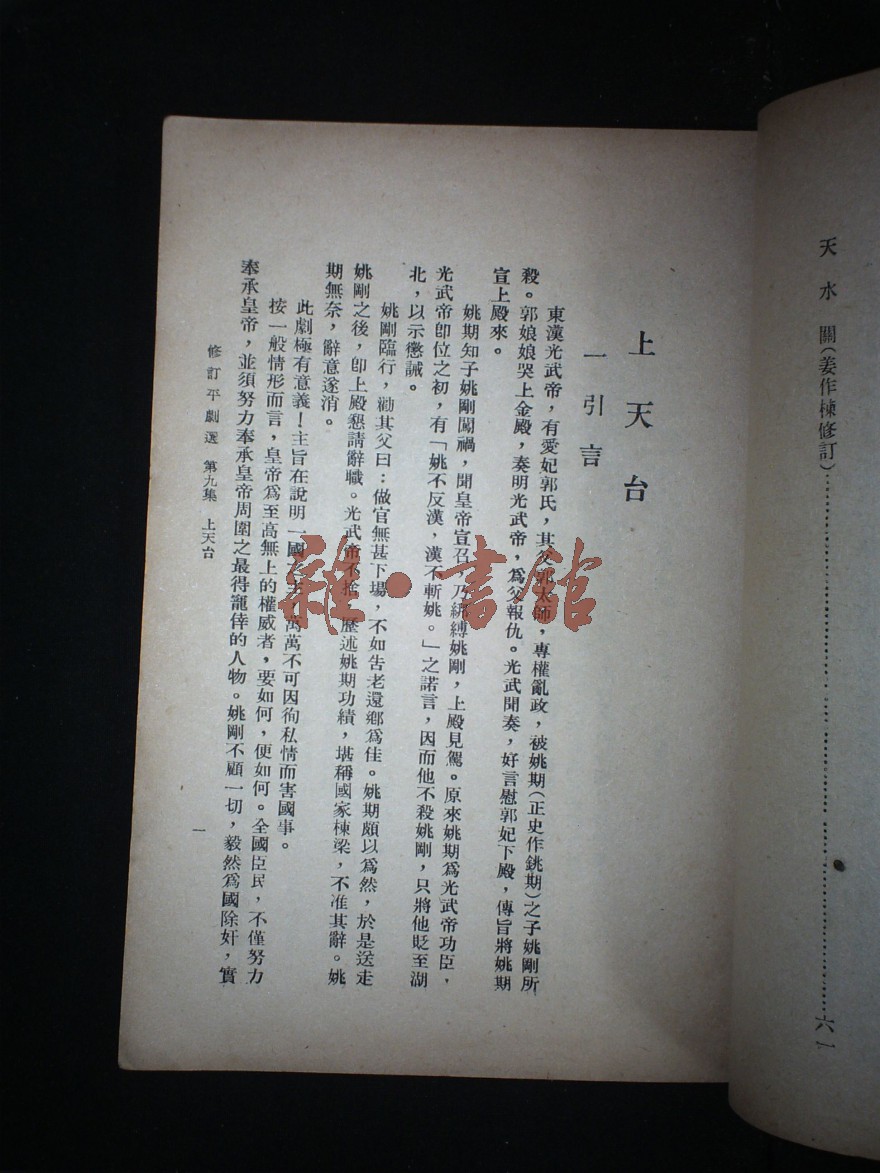 天水關(姜作棟修訂)……六一
上天台
一引言
東漢光武帝,有愛妃郭氏,其父郭太師,專權亂政,被姚期(正史作銚期)之子姚剛所
殺。郭娘娘哭上金殿,奏明光武帝,爲父報仇。光武聞奏,好言慰郭妃下殿,傳旨將姚期
宣上殿來。
姚期知子姚剛闖禍,聞皇帝宣召,乃綁縛姚剛,上殿見駕。原來姚期爲光武帝功臣,
光武帝卽位之初,有「姚不反漢,漢不斬姚。」之諾言,因而他不殺姚剛,只將他貶至湖
北,以示懲誡。
姚剛臨行,勸其父曰:做官無甚下場,不如吿老還鄉爲佳。姚期頗以爲然,於是送走
姚剛之後,卽上殿懇請辭職。光武帝不捨,歷述姚期功績,堪稱國家棟梁,不准其辭。姚
期無奈,辭意遂消。
此劇極有意義!主旨在說明一國之主,萬萬不可因徇私情而害國事。
按一般情形而言,皇帝爲至高無上的權威者,要如何,便如何。全國臣民,不僅努力
奉承皇帝,並須努力奉承皇帝周圍之最得寵倖的人物。姚剛不顧一切,毅然爲國除奸,實
修訂平劇選 第九集 上天台
一
雜·書館